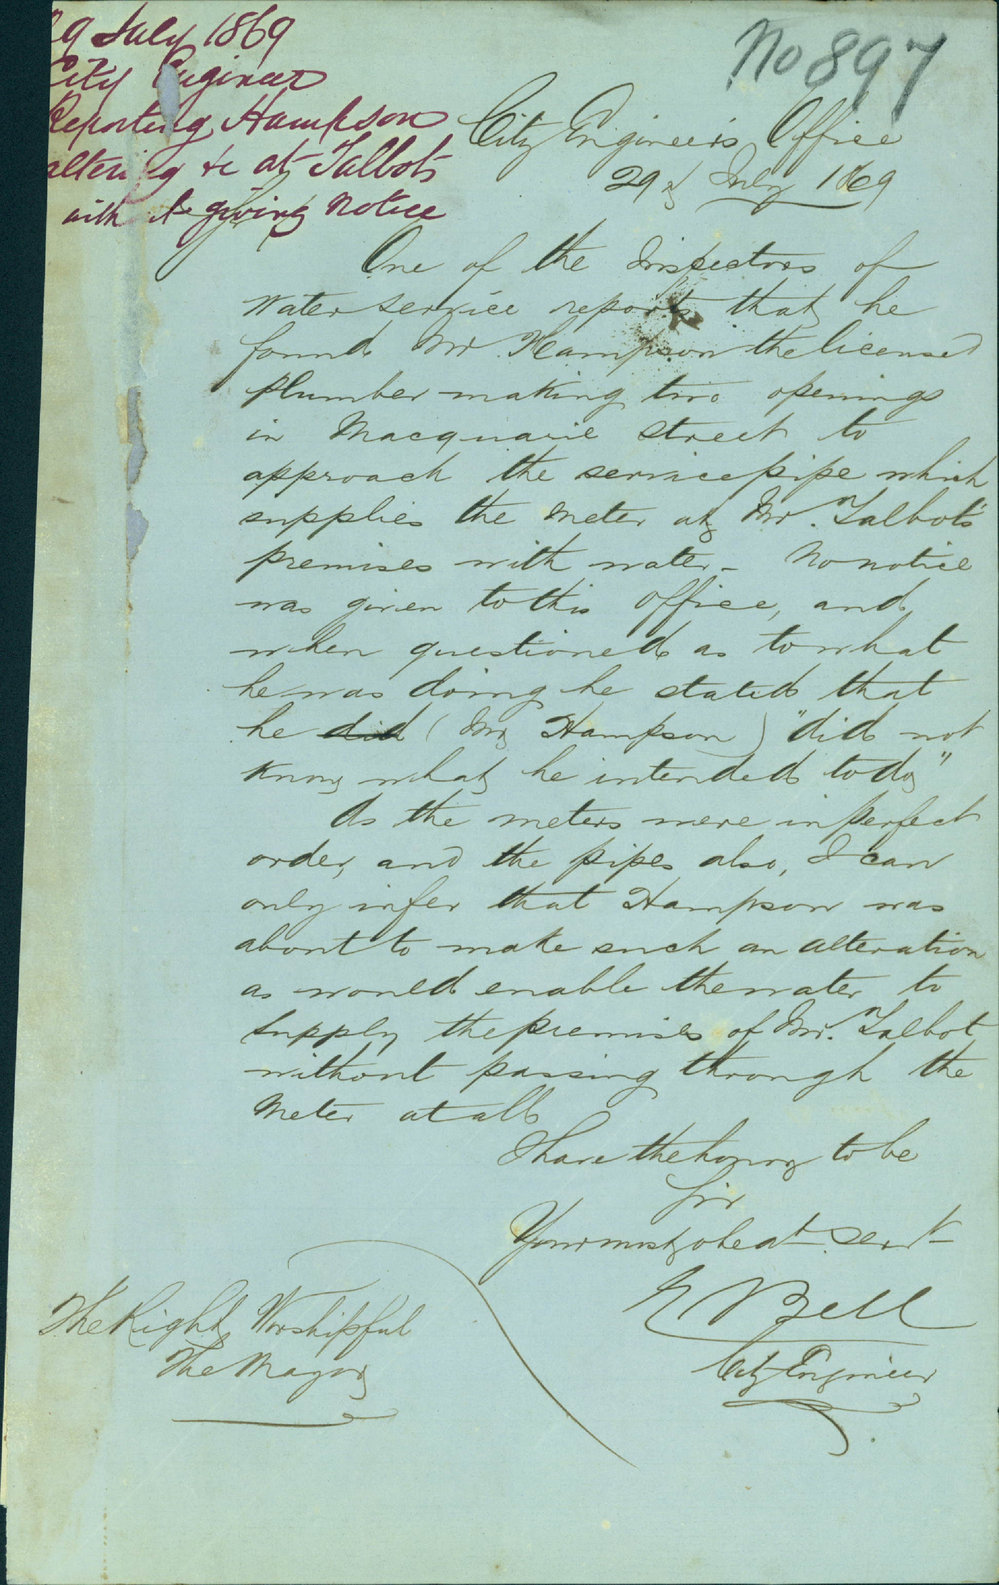 29 July 1869
City Engineer
Reporting Hampson
altering &c at Talbots
with giving Notice
No 897
City Engineer's Office
29 July 1869
Sir
One of the Inspectors of
Water service reports that he
found Mr. Hampson the licensed
plumber making two openings
in Macquarie Street to
approach the service pipe which
supplies the Meter at Mr. Talbot's
premises with water – No notice
was given to this Office, and
when questioned as to what
he was doing he stated that
he did (Mr Hampson) "did not
know what he intended to do"
As the meters were in perfect
order, and the pipes also, I can
only infer that Hampson was
about to make such an alteration
as would enable the water to
supply the premises of Mr. Talbot
without passing through the
Meter at all
I have the honor to be
Sir
Your most obedt servt
E Bell
City Engineer
The Right Worshipful
The Mayor